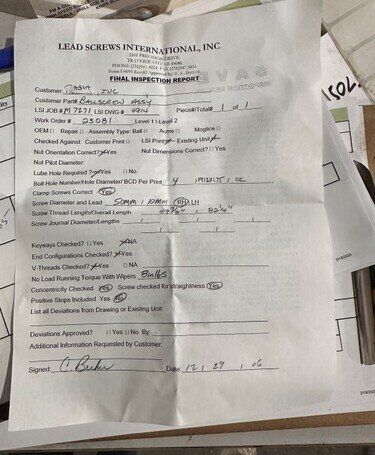 LEAD SCREWS INTERNATIONAL, INC.
2101 PRECISION DRIVE
TRAVERSE CITY, MI 49686
PHONE (231)947-4124 FAX (231)947-3821
FINAL INSPECTION REPORT
Customer INC
Customer Part# BALLSCREW ASSY
LSI JOB # M7271 LSI DWG # 4914 Piece#/Total# 1 of 1
Work Order # 23081 Level 1 \ Level 2
OEM Repair Assembly Type: Ball Acme Moglice
Checked Against: Customer Print LSI Print Existing Unit
Nut Orientation Correct? Yes Nut Dimensions Correct? Yes
Nut Pilot Diameter:
Lube Hole Required? Yes No
Bolt Hole Number/Hole Diameter/ BCD Per Print 4 OC
Clamp Screws Correct Yes
Screw Diameter and Lead 50MM / 10MM RH LH
Screw Thread Length/Overall Length
Screw Journal Diameter/Lengths
Keyways Checked? Yes NA
End Configurations Checked? Yes
V-Threads Checked? Yes NA
No Load Running Torque With Wipers 8 in lbs
Concentricity Checked Yes Screw checked for straightness Yes
Positive Stops Included Yes No
List all Deviations from Drawing or Existing Unit:
Deviations Approved? Yes No By:
Additional Information Requested by Customer.
Signed: Date: 12 / 29 / 06